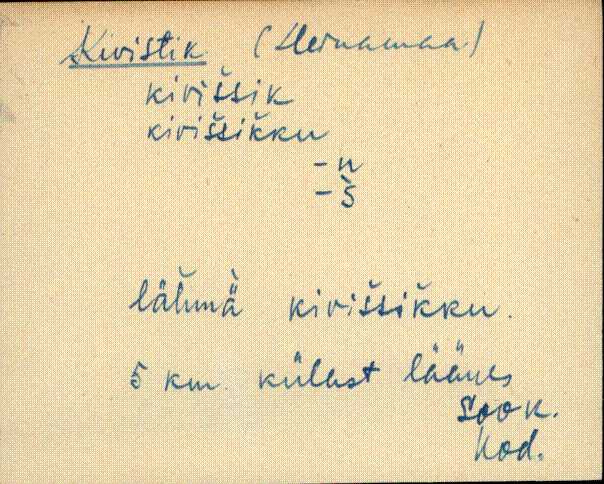 Kivistik (Hernamaa)
kiviššik
kiviššikku
-n
-s̀
lähmä̀ kiviššikku.
5 km. külast läänes
Sook.
Kod.